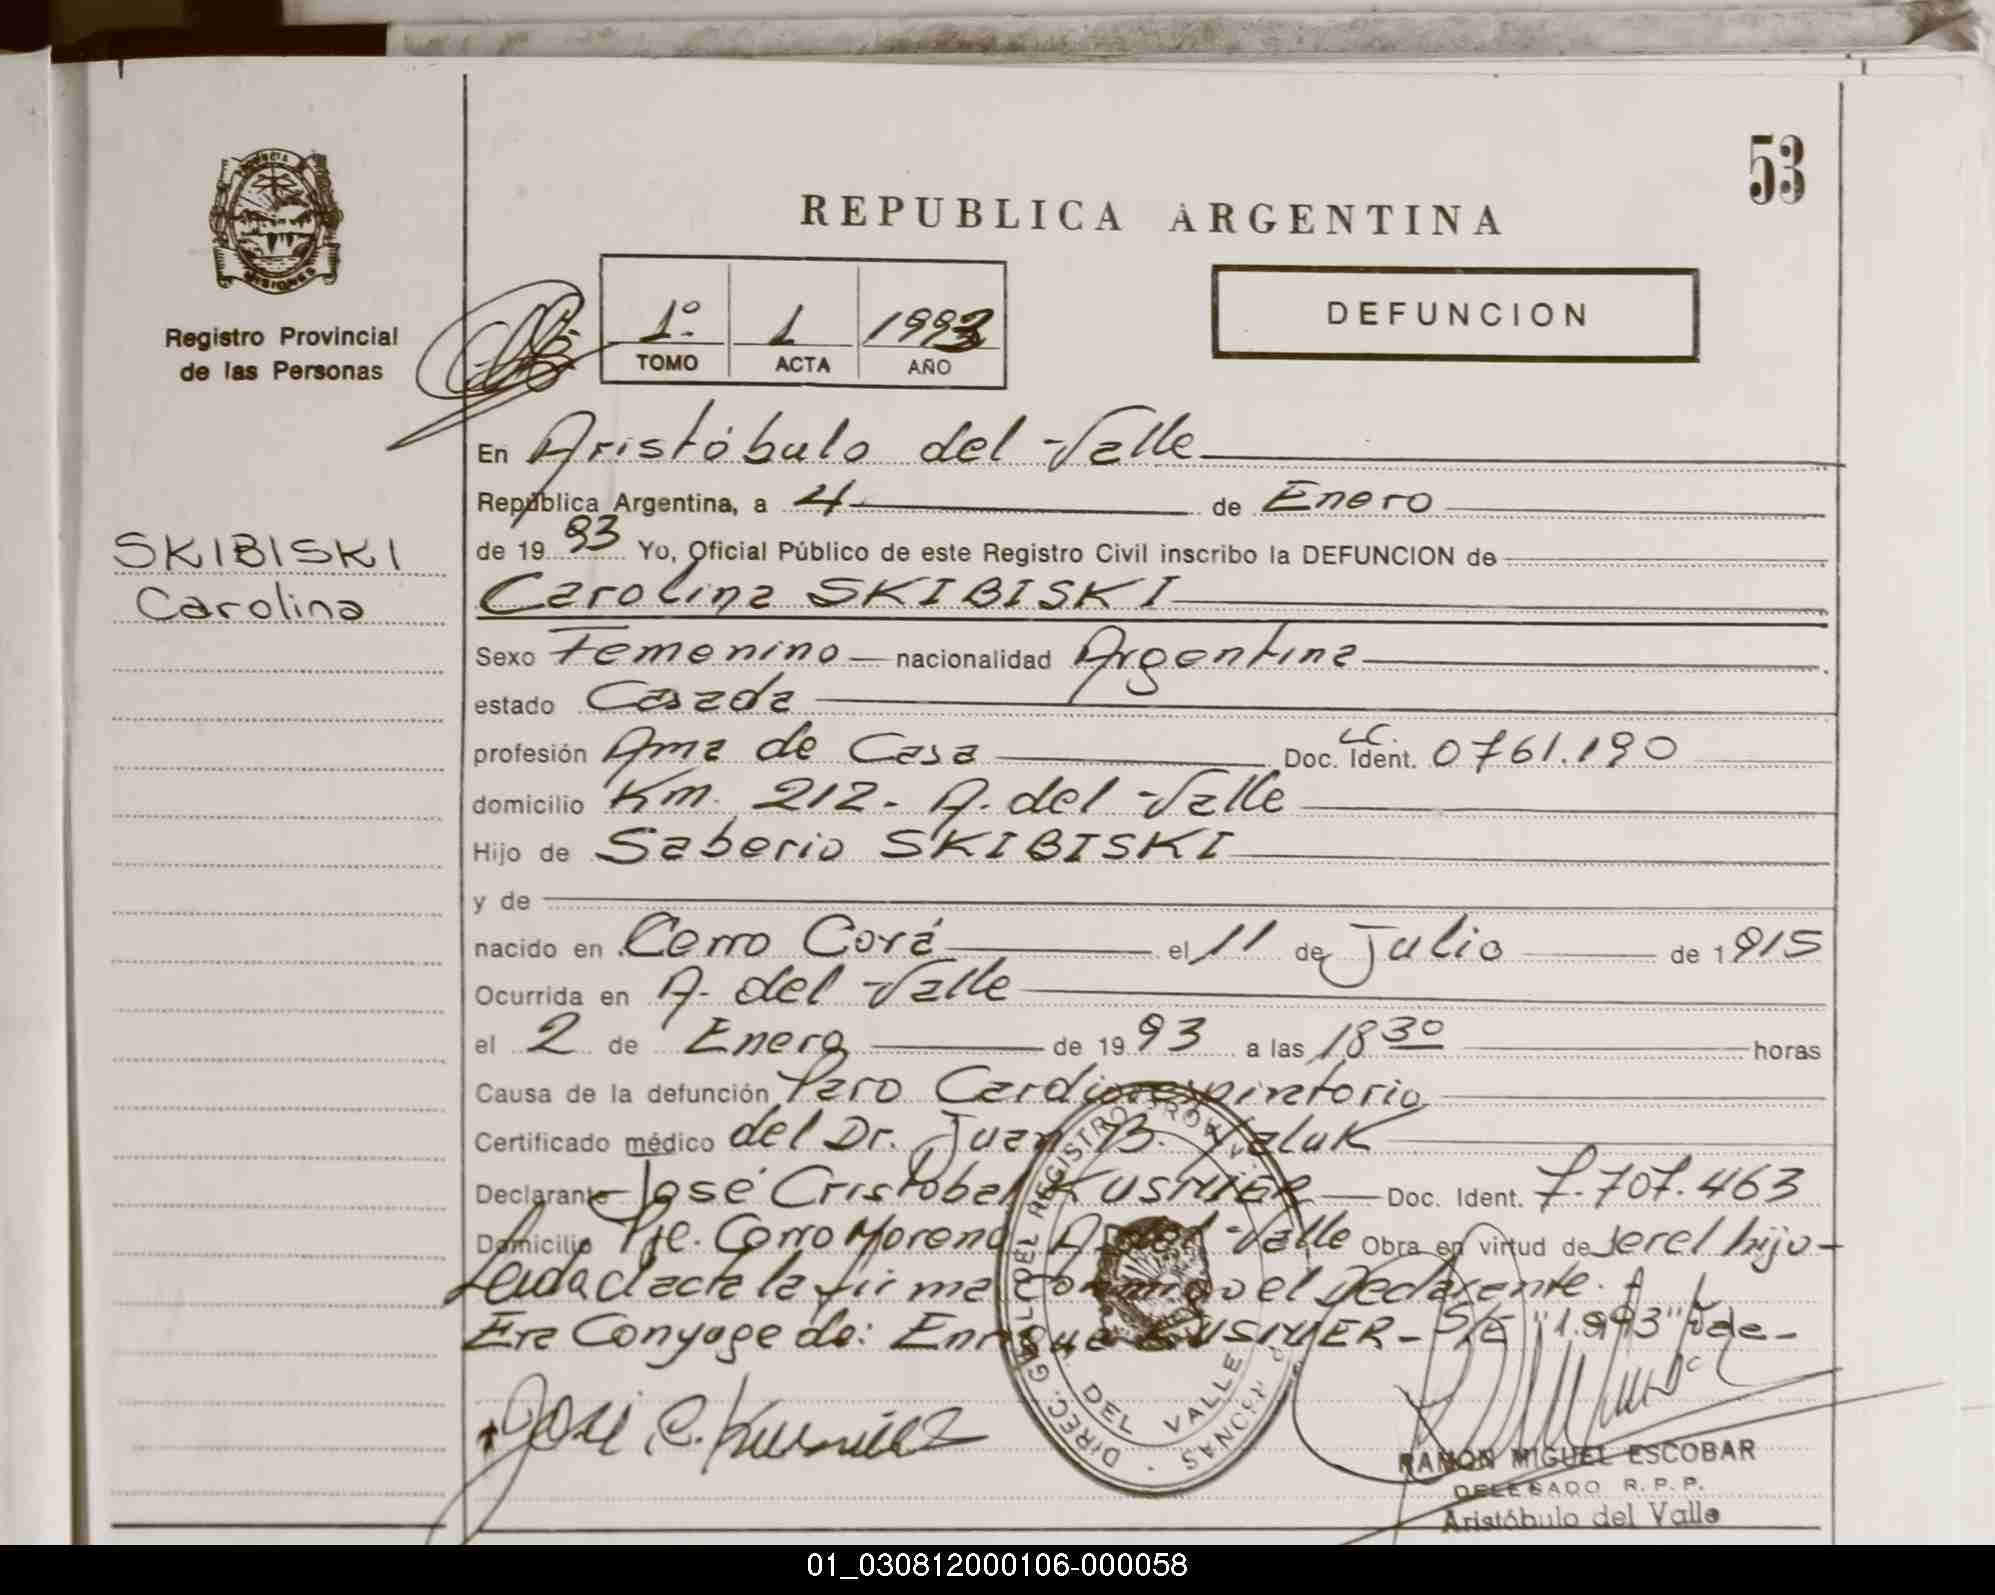 53
REPUBLICA ARGENTINA
PROVINCIA
MISIONES
Registro Provincial
de las Personas
1º 1 1993
TOMO ACTA AÑO
DEFUNCION
En Aristóbulo del Valle
República Argentina, a 4 de Enero
de 1993 Yo, Oficial Público de este Registro Civil inscribo la DEFUNCION de
SKIBISKI
Carolina
Carolina SKIBISKI
Sexo Femenino nacionalidad Argentina
estado Casada
profesión Ama de Casa Doc. Ident. L.C. 0761.190
domicilio Km. 212- A. del Valle
Hijo de Saberio SKIBISKI
y de
nacido en Cerro Corá el 11 de Julio de 1915
Ocurrida en A. del Valle
el 2 de Enero de 1993 a las 18 30 horas
Causa de la defunción Paro Cardiorespiratorio
Certificado médico del Dr. Juan B.
Declarante José Cristobal KUSNIER Doc. Ident. 7.707.463
Domicilio Pje. Cerro Moreno A. del Valle Obra en virtud de ser el hijo-
Leida el acta la firma conmigo el Declarante.
Era Conyuge de: Enrique KUSNIER- S/E "1.993" Vale-
José C. Kusnier
DIREC. GRAL. DEL REGISTRO PROV.
DEL VALLE
RAMON MIGUEL ESCOBAR
DELEGADO R.P.P.
Aristóbulo del Valle
01_030812000106-000058